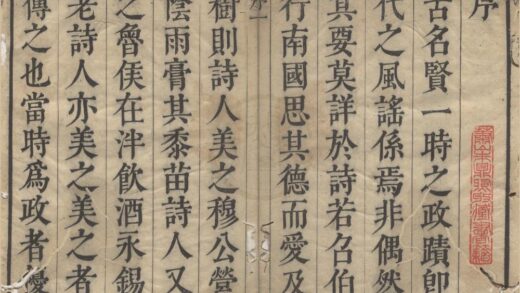 序
古名賢一時之政蹟即
代之風謠係焉非偶然
其要莫詳於詩若召伯
行南國思其德而愛及
序一
樹則詩人美之穆公營
陰雨膏其黍苗詩人又
之魯侯在泮飲酒永錫
老詩人亦美之美之者
傳之也當時為政者憂